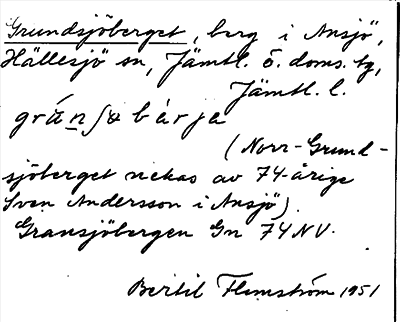 Grundsjöberget, berg i Ansjö,
Hällesjö sn, Jämtl. ö. doms. tg,
Jämtl. l.
(Norr-Grund-
sjöberget nekas av 74-årige
Sven Andersson i Ansjö).
Gransjöbergen Gn 74 NV.
Bertil Flemström 1951